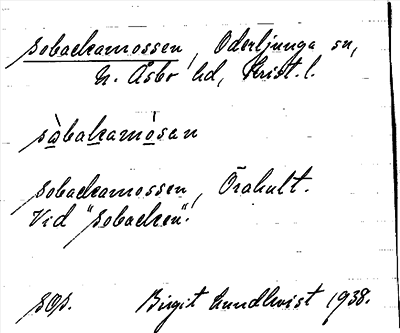 Sobackamossen, Oderljunga sn,
N. Åsbo hd, Krist. l.
sàbakamósan
Sobackamossen, Örahult.
Vid "Sobacken".
Birgit Lundkvist 1938.